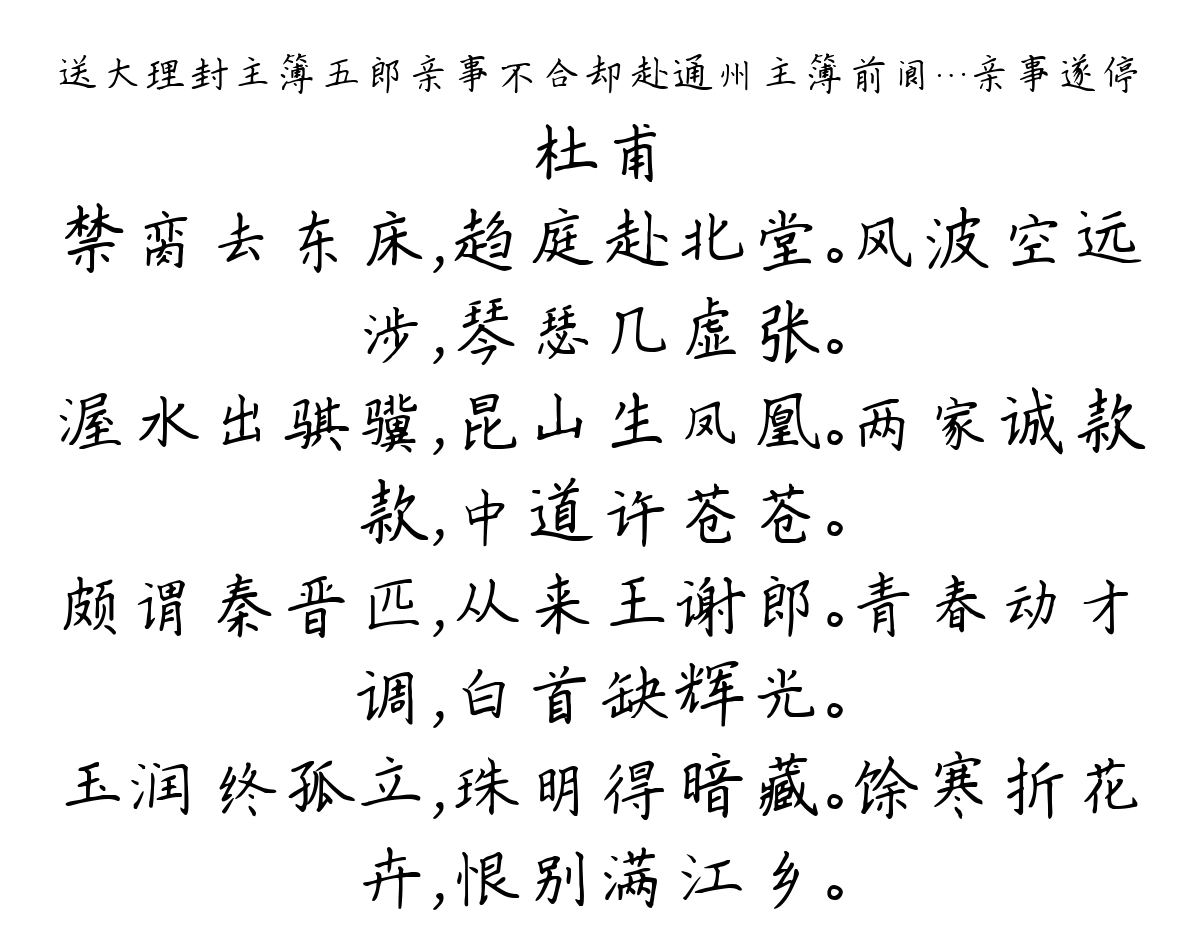 送大理封主簿五郎亲事不合却赴通州主簿前阆…亲事遂停
杜甫
禁脔去东床,趋庭赴北堂。风波空远
涉,琴瑟几虚张。
渥水出骐骥,昆山生凤凰。两家诚款
款,中道许苍苍。
颇谓秦晋匹,从来王谢郎。青春动才
调,白首缺辉光。
玉润终孤立,珠明得暗藏。馀寒折花
卉,恨别满江乡。